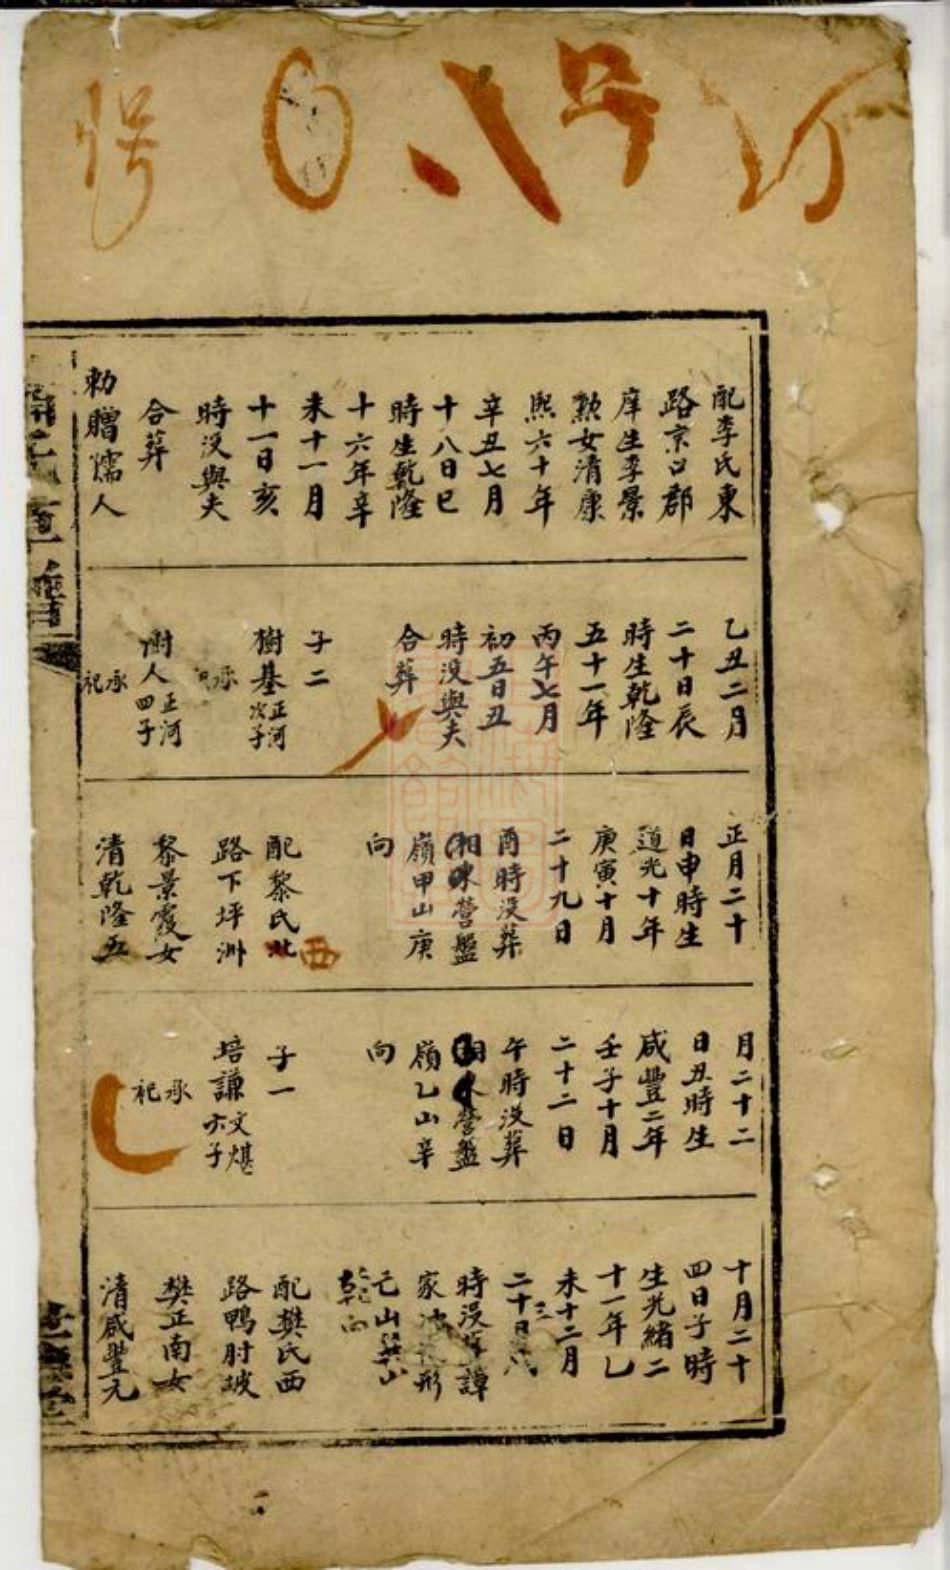 配李氏東
路京口郡
庠生李景
勲女清康
熙六十年
辛丑七月
十八日巳
時生乾隆
十六年辛
未十一月
十一日亥
時没與夫
合葬
勅贈孺人
乙丑二月
二十日辰
時生乾隆
五十一年
丙午七月
初五日丑
時没與夫
合葬
子二
樹基正河次子
承
樹人正河四子
承祀
正月二十
日申時生
道光十年
庚寅十月
二十九日
酉時没葬
湘東營盤
嶺甲山庚
向
配黎氏北
西
路下坪洲
黎景霞女
清乾隆五
月二十二
日丑時生
咸豐二年
壬子十月
二十二日
午時没葬
營盤
嶺乙山辛
向
子一
培謙文煁六子
承祀
十月二十
四日子時
生光緒二
十一年乙
未十二月
二十日
三
時没葬譚
家形
山
配樊氏西
路鴨肘坡
樊正南女
清咸豐元